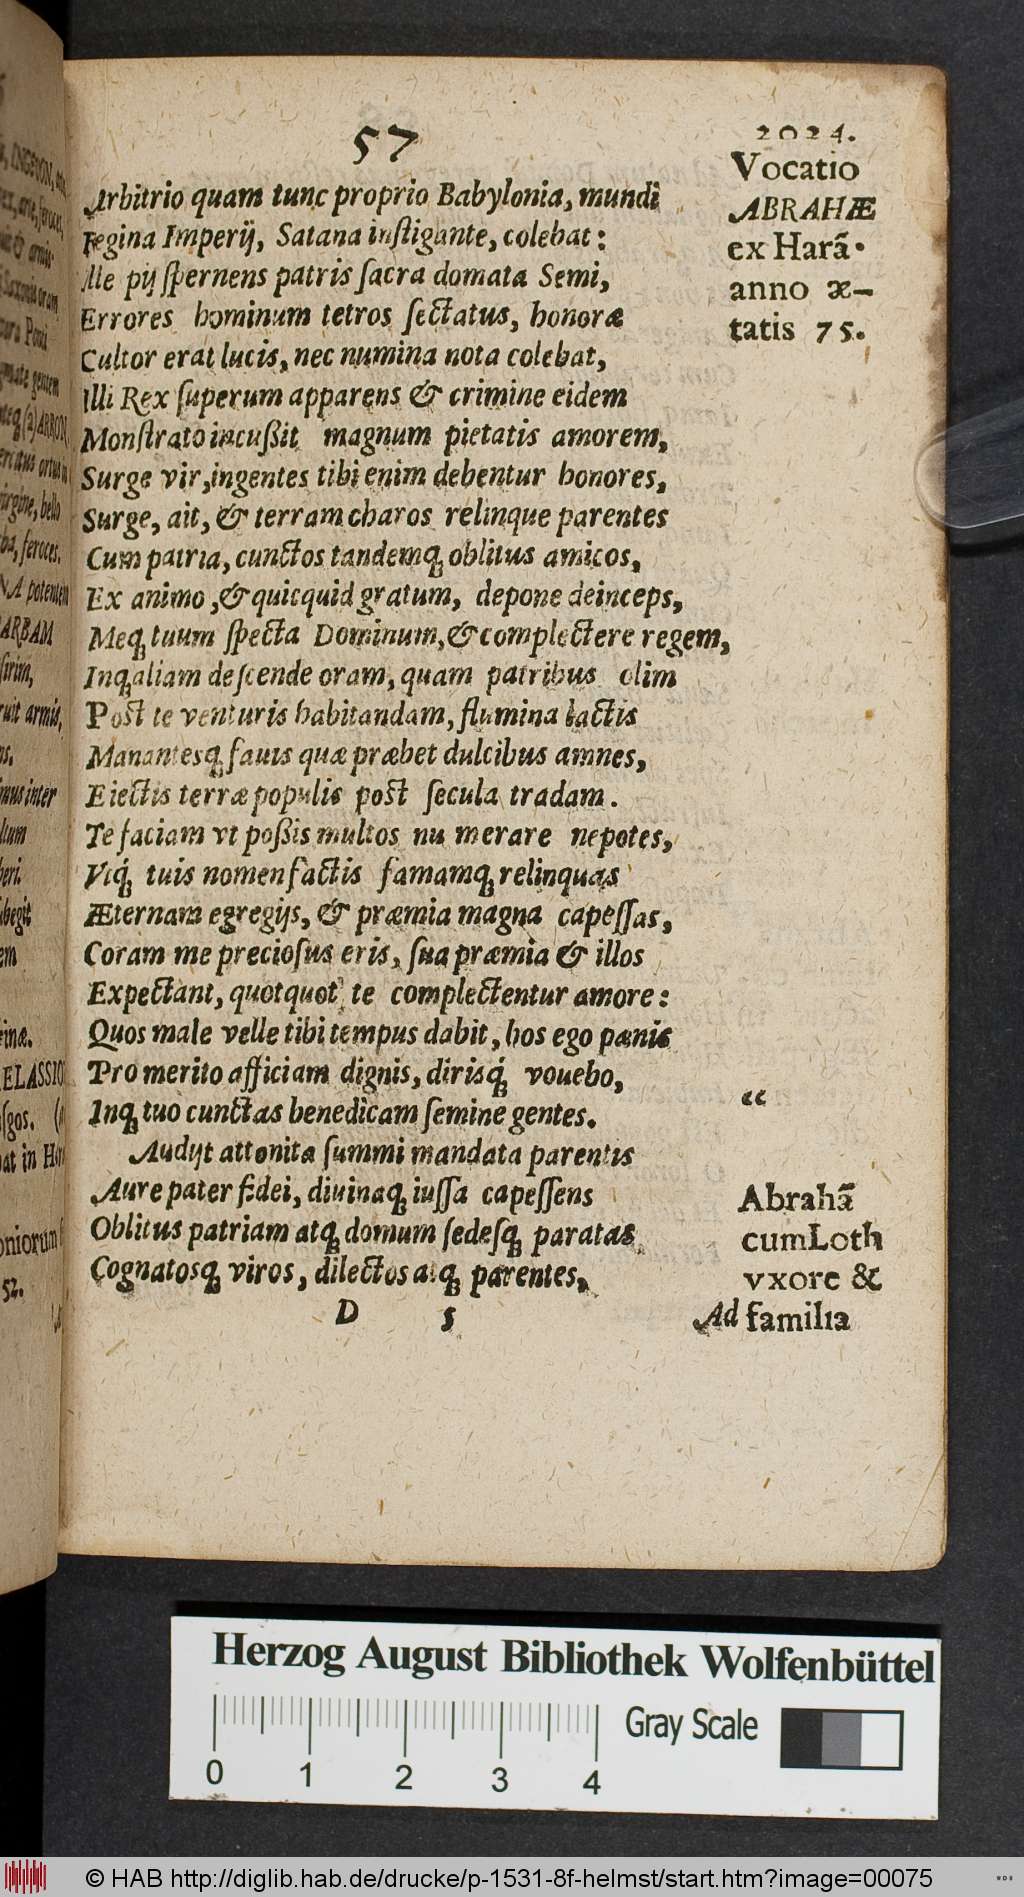 57
Arbitrio quam tunc proprio Babylonia, mundi
Regina Imperij, Satana instigante, colebat:
Ille pij spernens patris sacra domata Semi,
Errores hominum tetros sectatus, honoræ
Cultor erat lucis, nec numina nota colebat,
Illi Rex superum apparens & crimine eidem
Monstrato incußit magnum pietatis amorem,
Surge vir, ingentes tibi enim debentur honores,
Surge, ait, & terram charos relinque parentes
Cum patria, cunctos tandemq́; oblitus amicos,
Ex animo, & quicquid gratum, depone deinceps,
Meq́; tuum specta Dominum, & complectere regem,
Inq́; aliam descende oram, quam patribus olim
Post te venturis habitandam, flumina lactis
Manantesq́; fauis quæ præbet dulcibus amnes,
Eiectis terræ populis post secula tradam.
Te faciam vt poßis multos nu merare nepotes,
Vtq́; tuis nomen factis famamq́; relinquas
Æternam egregijs, & præmia magna capessas,
Coram me preciosus eris, sua præmia & illos
Expectant, quotquot te complectentur amore:
Quos male velle tibi tempus dabit, hos ego pœnis
Pro merito afficiam dignis, dirisq́; vouebo,
Inq́; tuo cunctas benedicam semine gentes.
Audijt attonita summi mandata parentis
Aure pater fidei, diuinaq́; iussa capessens
Oblitus patriam atq́; domum sedesq́; paratas,
Cognatosq́; viros, dilectos atq́; parentes,
D 5
Ad
2024.
Vocatio
ABRAHÆ
ex Harã.
anno æ-
tatis 75.
“
Abrahã
cum Loth
vxore &
familia
INGEVON,
feroces,
armis
oram
Poni
gentem
ortus
virgine, bello
feroces.
potentem
ARBAM
armis,
inter
ELASSIO
sgos.
at in
oniorum
52.
Herzog August Bibliothek Wolfenbüttel
0 1 2 3 4
Gray Scale
© HAB http://diglib.hab.de/drucke/p-1531-8f-helmst/start.htm?image=00075